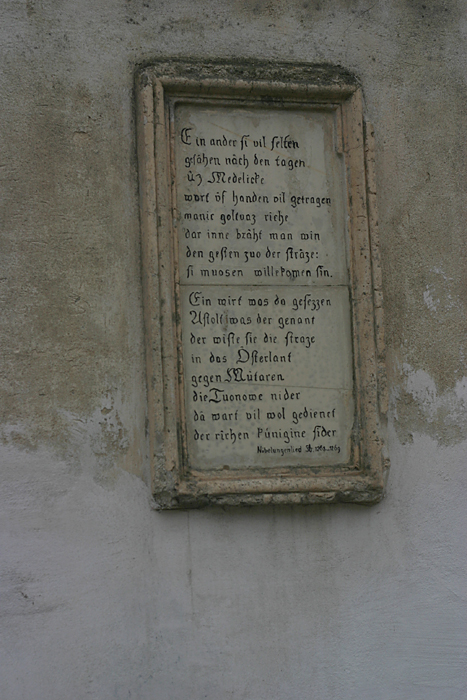 Ein ander si vil selten
gesâhen nâch den tagen
ûz Medelicke
wart ûf handen vil getragen
manic goltvaz riche
dar inne brâht man win
den gesten zuo der strâze:
si muosen willekomen sin.
Ein wirt was da gesezzen
Astolt was der genant
der wiste sie die straze
in das Osterlant
gegen Mûtaren
die Tuonowe nider
dâ wart vil wol gedienet
der richen künigine sider
Nibelungenlied